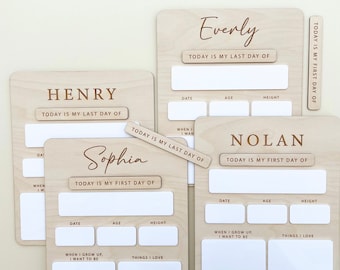 Everly
TODAY IS MY LAST DAY OF
DATE AGE HEIGHT
WHEN I GROW UP,
TODAY IS MY FIRST DAY OF
HENRY
TODAY IS MY LAST DAY OF
TODAY IS MY LAST DAY OF
Sophia
TODAY IS MY FIRST DAY OF
DATE AGE HEIGHT
WHEN I GROW UP
I WANT TO BE
THINGS I LOVE
NOLAN
TODAY IS MY FIRST DAY OF
DATE AGE HEIGHT
WHEN I GROW UP
I WANT TO BE
THINGS I LOVE